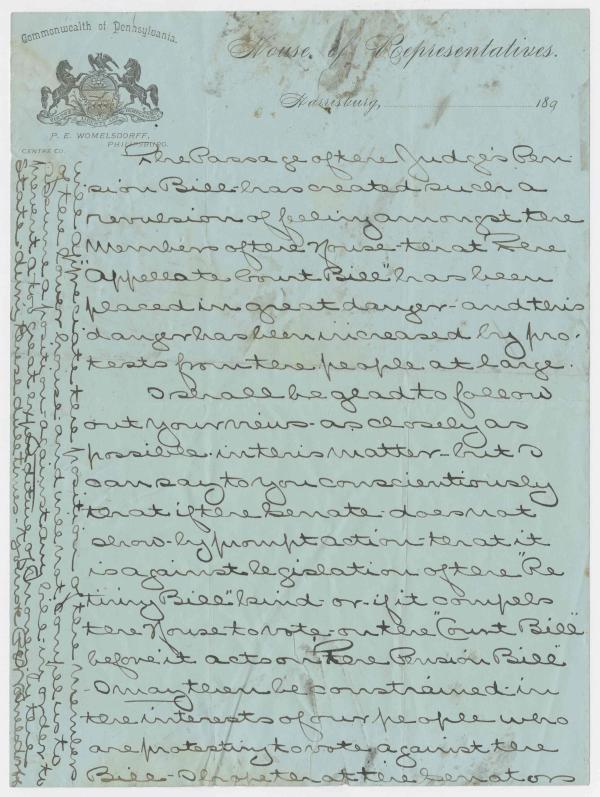 Commonwealth of Pennsylvania.
House of Representatives.
Harrisburg, 189
P. E. WOMELSDORFF,
PHILIPSBURG.
CENTRE CO.
The Passage of the Judge's Pen-
sion Bill - has created such a
revulsion of feeling amongst the
Members of the House - that The
"Appellate Court Bill" has been
placed in great danger - and this
danger has been increased by pro-
tests from the people at large.
I shall be glad to follow
out your views - as closely as
possible - in this matter - but I
can say to you conscientiously
that if the Senate does not
show - by prompt action - that it
is against legislation of the "Re
tiring Bill" kind - or - if it compels
the House to vote - on the "Court Bill"
before it acts on The Pension Bill"
- I may then be constrained in
the interests of our people who
are protesting to vote against the
Bill - I hope that the Senators
will appreciate the position of the Members
of the Lower House and we not compelled to
against any bill in order to
State during these